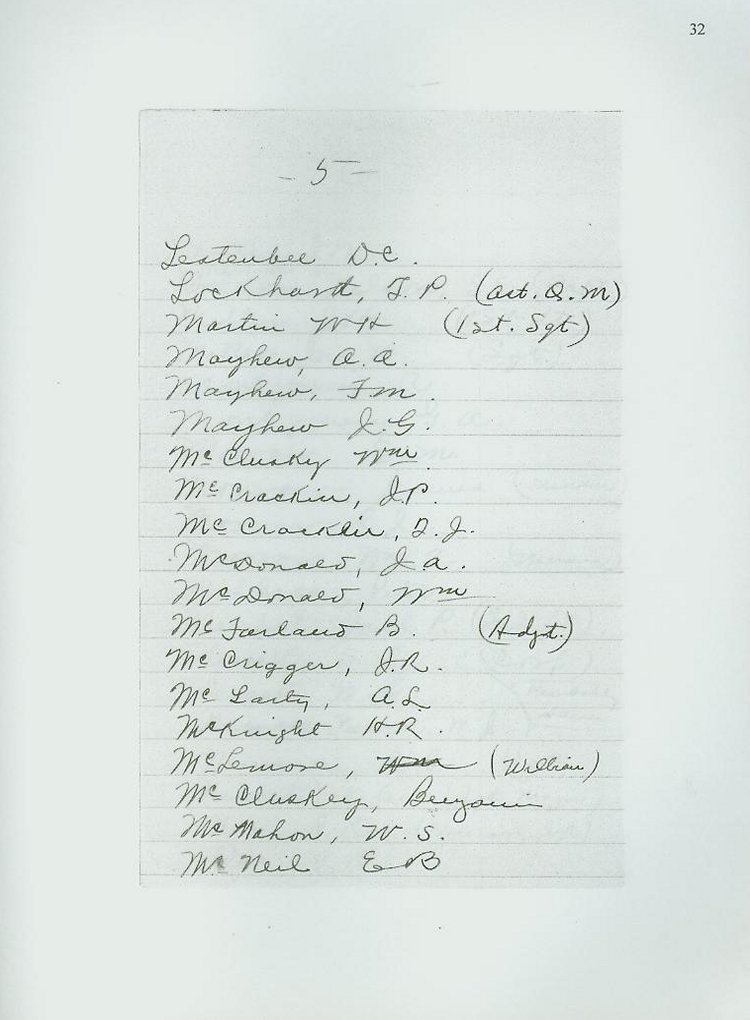 32
- 5 -
Lestenbee D.C.
Lockhart, T. P. (ast. Q. M)
Martin W H (1st. Sgt)
Mayhew, A. A.
Mayhew, F. M.
Mayhew J. G.
McClusky Wm
McCrackin, J. P.
McCracklin, J.
McDonald, J. A.
McDonald, Wm
McFarland B. (Adjt.)
McCrigger, J. R.
McLarty, A. L
McKnight H. R.
McLemore, Wm (William)
McCluskey, Benjamin
McMahon, W. S.
McNeil E B